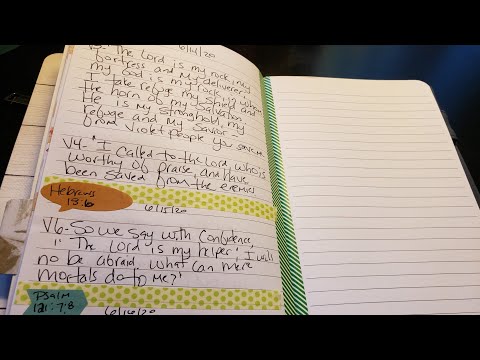 6/14/20
V3-"The Lord is my rock, my
fortress and my deliverer
my God is my rock, in whom
I take refuge, my shield and
the horn of my salvation.
He is my stronghold, my
refuge and my savior -
from violet people you save me
V4-"I called to the Lord, who is
worthy of praise, and have
been saved from the enemies
Hebrews
13:6
6/15/20
V6-So we say with Confidence,
"The Lord is my helper; I will
no be afraid. What can mere
mortals do to me?"
Psalm
121:7-8
6/16/20